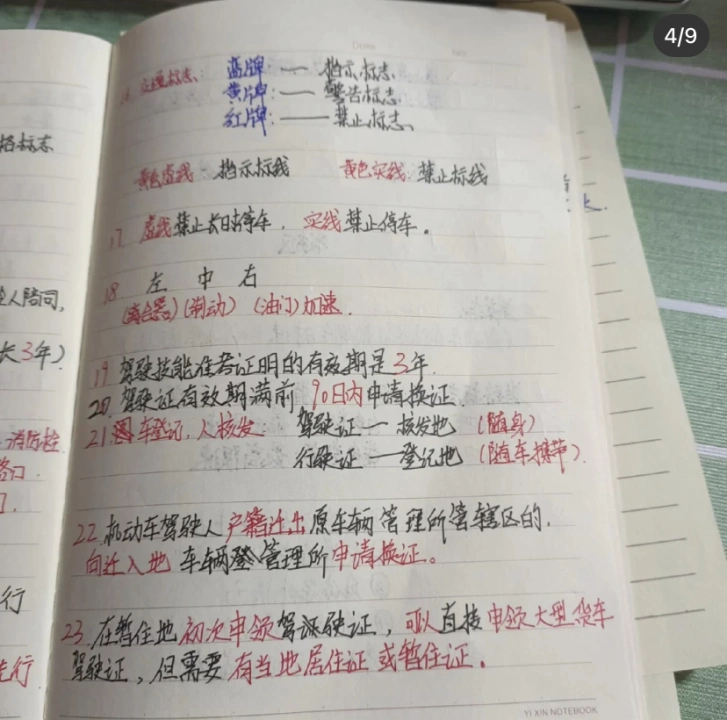 4/9
Date
No.
16 交通标志: 高牌 — 指示标志
黄牌: — 警告标志
红牌: — 禁止标志、
黄色虚线 指示标线 黄色实线 禁止标线
17 虚线禁止长时停车, 实线禁止停车。
18 左 中 右
(离合器) (制动) (油门) 加速.
19 驾驶技能准考证明的有效期是3年.
20. 驾驶证有效期满前 90日内申请换证.
21 车登记, 人核发 驾驶证 — 核发地 (随身)
行驶证 — 登记地 (随车携带).
22. 机动车驾驶人 户籍迁出原车辆管理所管辖区的.
向迁入地 车辆登管理所申请换证。
23. 在暂住地初次申领驾驶证, 可以直接申领大型货车
驾驶证, 但需要有当地居住证或暂住证。
YI XIN NOTEBOOK
指标志
人陪同,
长3年)
消防栓
路口.
门.
行
先行